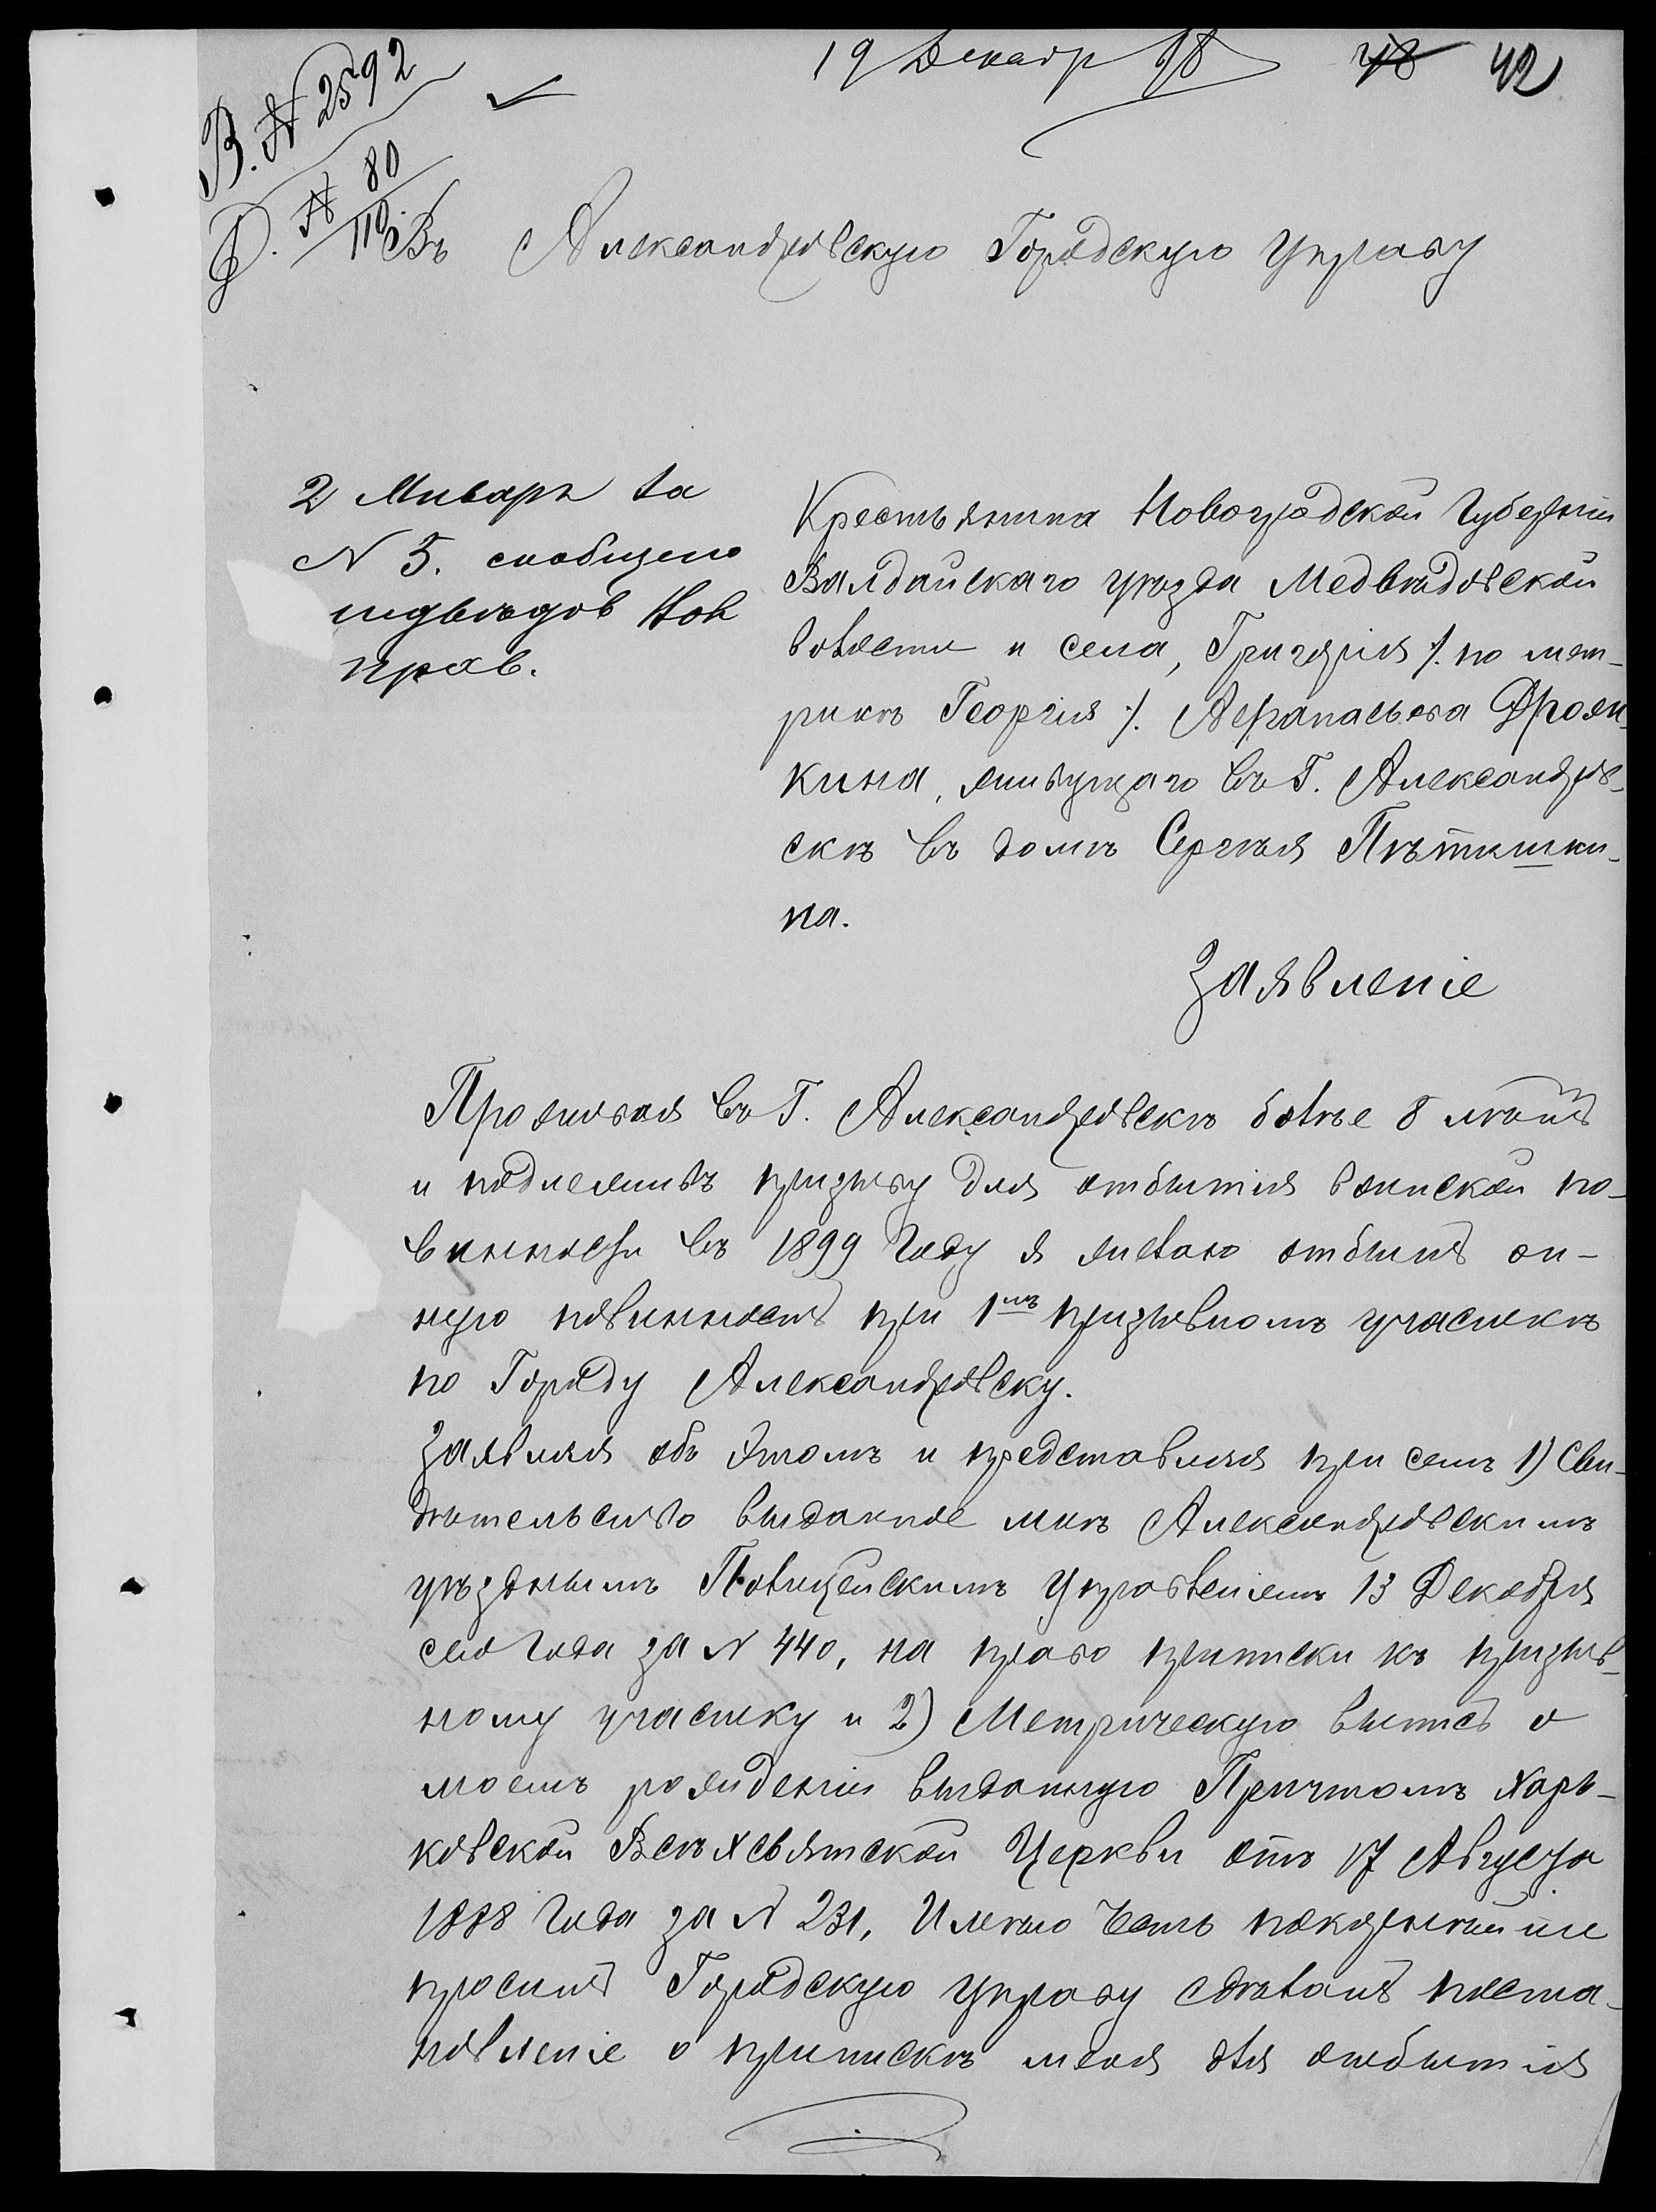 В. № 2592
19 Декабр 98
42
Ф. № 80
110
Въ Александровскую Городскую Управу
2 Января за
N 5. сообщено
медвѣдов Вол
прав.
Крестьянина Новогродской Губерніи
Валдайскаго уѣзда Медвѣдовской
волости и села, Григорія /. по мет-
рикѣ Георгія /. Афанасьева Дрожи-
кина, живущаго въ Г. Александров-
скѣ въ домѣ Сергѣя Пѣтишки-
на.
Заявленіе
Проживая въ Г. Александровскѣ болѣе 8 лѣтъ
и подлежить призыву для отбытія воинской по-
винности въ 1899 Году я желаю отбыть он-
ную повинность при 1мъ призывномъ участкѣ
по Городу Александровску.
Заявляя объ этомъ и представляя при семъ 1) Сви-
дѣтельство выданное мнѣ Александровскимъ
уѣзднымъ Полицейскимъ Управленіемъ 13 Декабря
сего Года за N 440, на право приписки къ призыв-
ному участку и 2) Метрическую выпись о
моемъ рожденіи выданную Причтомъ Харь-
ковской Всѣхсвятской Церкви отъ 17 Августа
1888 Года за N 231, Имѣю Честь покорнѣйше
просить Городскую Управу сдѣлать поста-
новленіе о припискѣ меня для отбытія